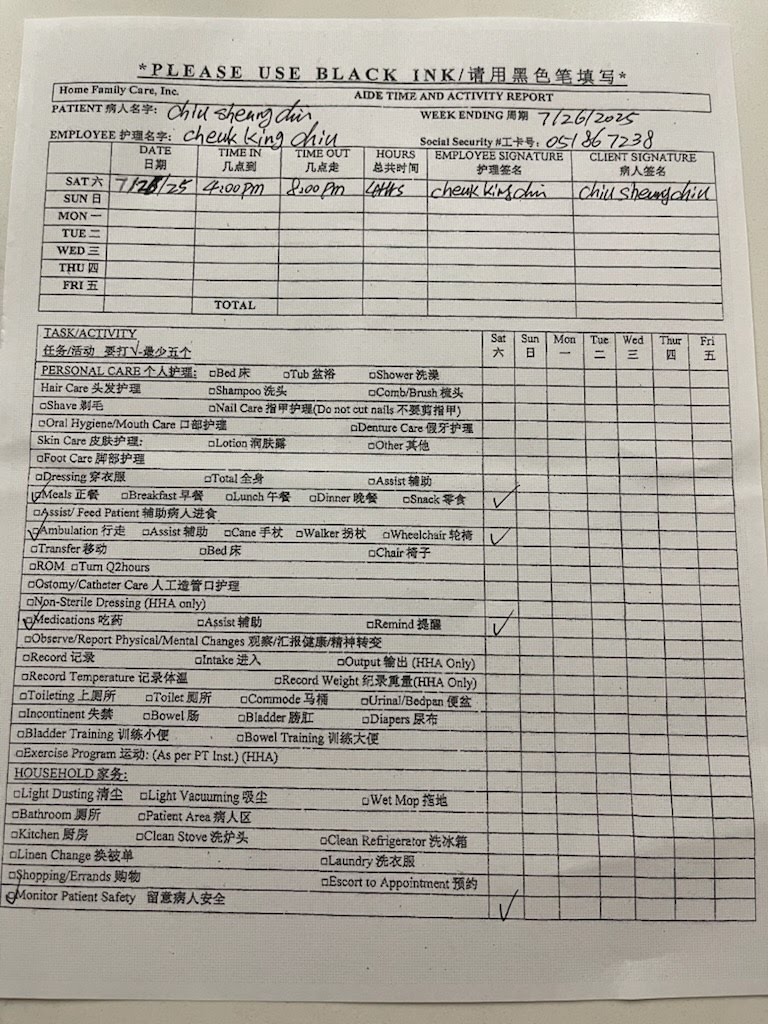 *PLEASE USE BLACK INK/请用黑色笔填写*
Home Family Care, Inc. AIDE TIME AND ACTIVITY REPORT
PATIENT 病人名字: Chiu sheung chiu WEEK ENDING 周期 7/26/2025
EMPLOYEE 护理名字: cheuk king chiu Social Security #工卡号: 051867238
DATE TIME IN TIME OUT HOURS EMPLOYEE SIGNATURE CLIENT SIGNATURE
日期 几点到 几点走 总共时间 护理签名 病人签名
SAT 六 7/26/25 4:00pm 8:00pm 4HRS cheuk king chiu chiu sheung chiu
SUN 日
MON 一
TUE 二
WED 三
THU 四
FRI 五
TOTAL
TASK/ACTIVITY Sat Sun Mon Tue Wed Thur Fri
任务/活动 要打√-最少五个 六 日 一 二 三 四 五
PERSONAL CARE 个人护理: □Bed 床 □Tub 盆浴 □Shower 洗澡
Hair Care 头发护理 □Shampoo 洗头 □Comb/Brush 梳头
□Shave 剃毛 □Nail Care 指甲护理(Do not cut nails 不要剪指甲)
□Oral Hygiene/Mouth Care 口部护理 □Denture Care 假牙护理
Skin Care 皮肤护理: □Lotion 润肤露 □Other 其他
□Foot Care 脚部护理
□Dressing 穿衣服 □Total 全身 □Assist 辅助
□Meals 正餐 □Breakfast 早餐 □Lunch 午餐 □Dinner 晚餐 □Snack 零食 ✓
□Assist/ Feed Patient 辅助病人进食
□Ambulation 行走 □Assist 辅助 □Cane 手杖 □Walker 拐杖 □Wheelchair 轮椅 ✓
□Transfer 移动 □Bed 床 □Chair 椅子
□ROM □Turn Q2hours
□Ostomy/Catheter Care 人工造管口护理
□Non-Sterile Dressing (HHA only)
□Medications 吃药 □Assist 辅助 □Remind 提醒 ✓
□Observe/Report Physical/Mental Changes 观察/汇报健康/精神转变
□Record 记录 □Intake 进入 □Output 输出 (HHA Only)
□Record Temperature 记录体温 □Record Weight 纪录重量(HHA Only)
□Toileting 上厕所 □Toilet 厕所 □Commode 马桶 □Urinal/Bedpan 便盆
□Incontinent 失禁 □Bowel 肠 □Bladder 膀肛 □Diapers 尿布
□Bladder Training 训练小便 □Bowel Training 训练大便
□Exercise Program 运动: (As per PT Inst.) (HHA)
HOUSEHOLD 家务:
□Light Dusting 清尘 □Light Vacuuming 吸尘 □Wet Mop 拖地
□Bathroom 厕所 □Patient Area 病人区
□Kitchen 厨房 □Clean Stove 洗炉头 □Clean Refrigerator 洗冰箱
□Linen Change 换被单 □Laundry 洗衣服
□Shopping/Errands 购物 □Escort to Appointment 预约
□Monitor Patient Safety 留意病人安全 ✓